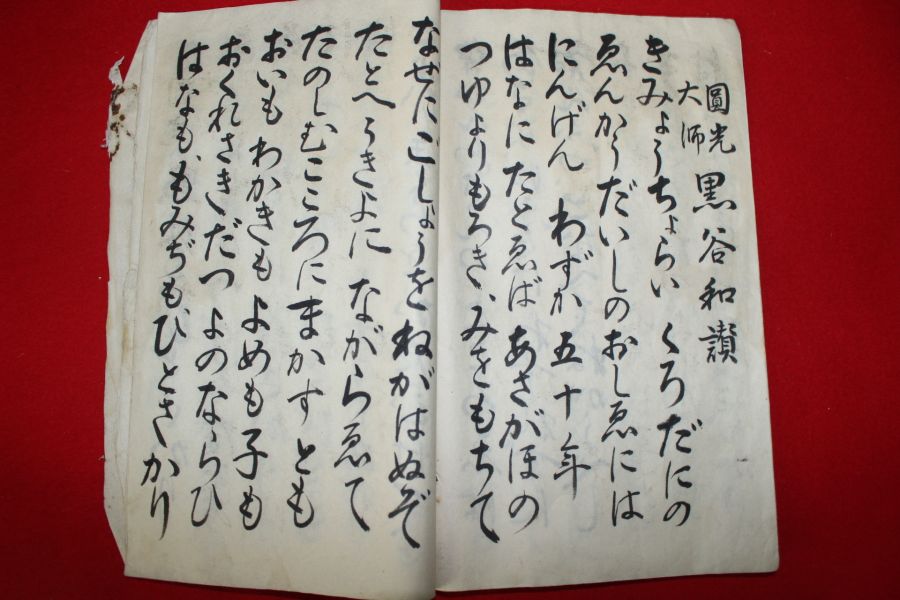 圓光大師 黒谷和讃
きみょうちょらい くろだにの
ゑんかうだいしのおしゑには
にんげん わずか五十年
はなに たとゑば あさがほの
つゆよりもろき、みをもちて
なぜにごしょうをねがはぬぞ
たとへうきよに ながらゑて
たのしむこころにまかすとも
おいも わかきも よめも子も
おくれさきだつ よのならひ
はなも、もみぢもひとさかり